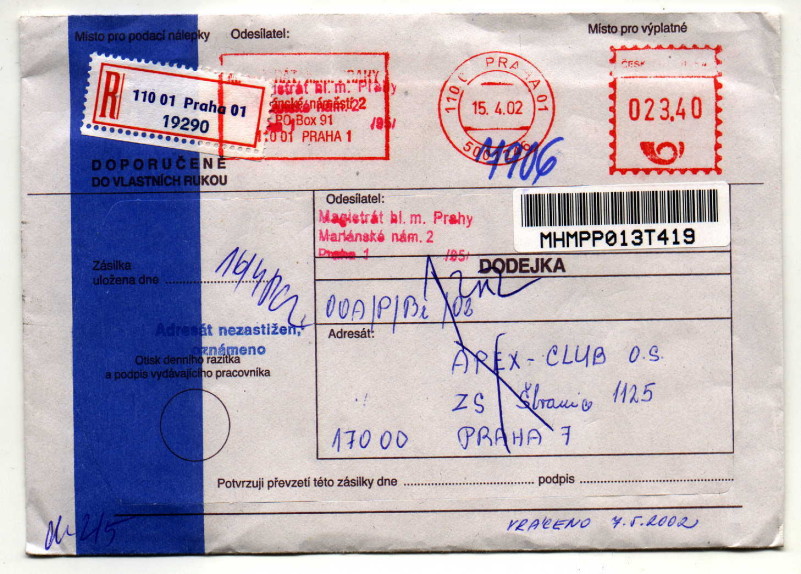 Místo pro podací nálepky
Odesílatel:
Místo pro výplatné
R
110 01 Praha 01
19290
Magistrát hl. m. Prahy
Mariánské náměstí 2
nám. 2
PO Box 91
/95/
110 01 PRAHA 1
PRAHA 01
15. 4. 02
023.40
11906
DOPORUČENĚ
DO VLASTNÍCH RUKOU
Odesílatel:
Magistrát hl. m. Prahy
Mariánské nám. 2
Praha 1 /95/
MHMPP013T419
DODEJKA
Zásilka
uložena dne
16/4
OOA/P/Bi /02
Adresát nezastižen,
oznámeno
Adresát:
Otisk denního razítka
a podpis vydávajícího pracovníka
APEX - CLUB O.S.
ZS 1125
170 00 PRAHA 7
Potvrzuji převzetí této zásilky dne podpis
2/5
VRÁCENO 7.5.2002